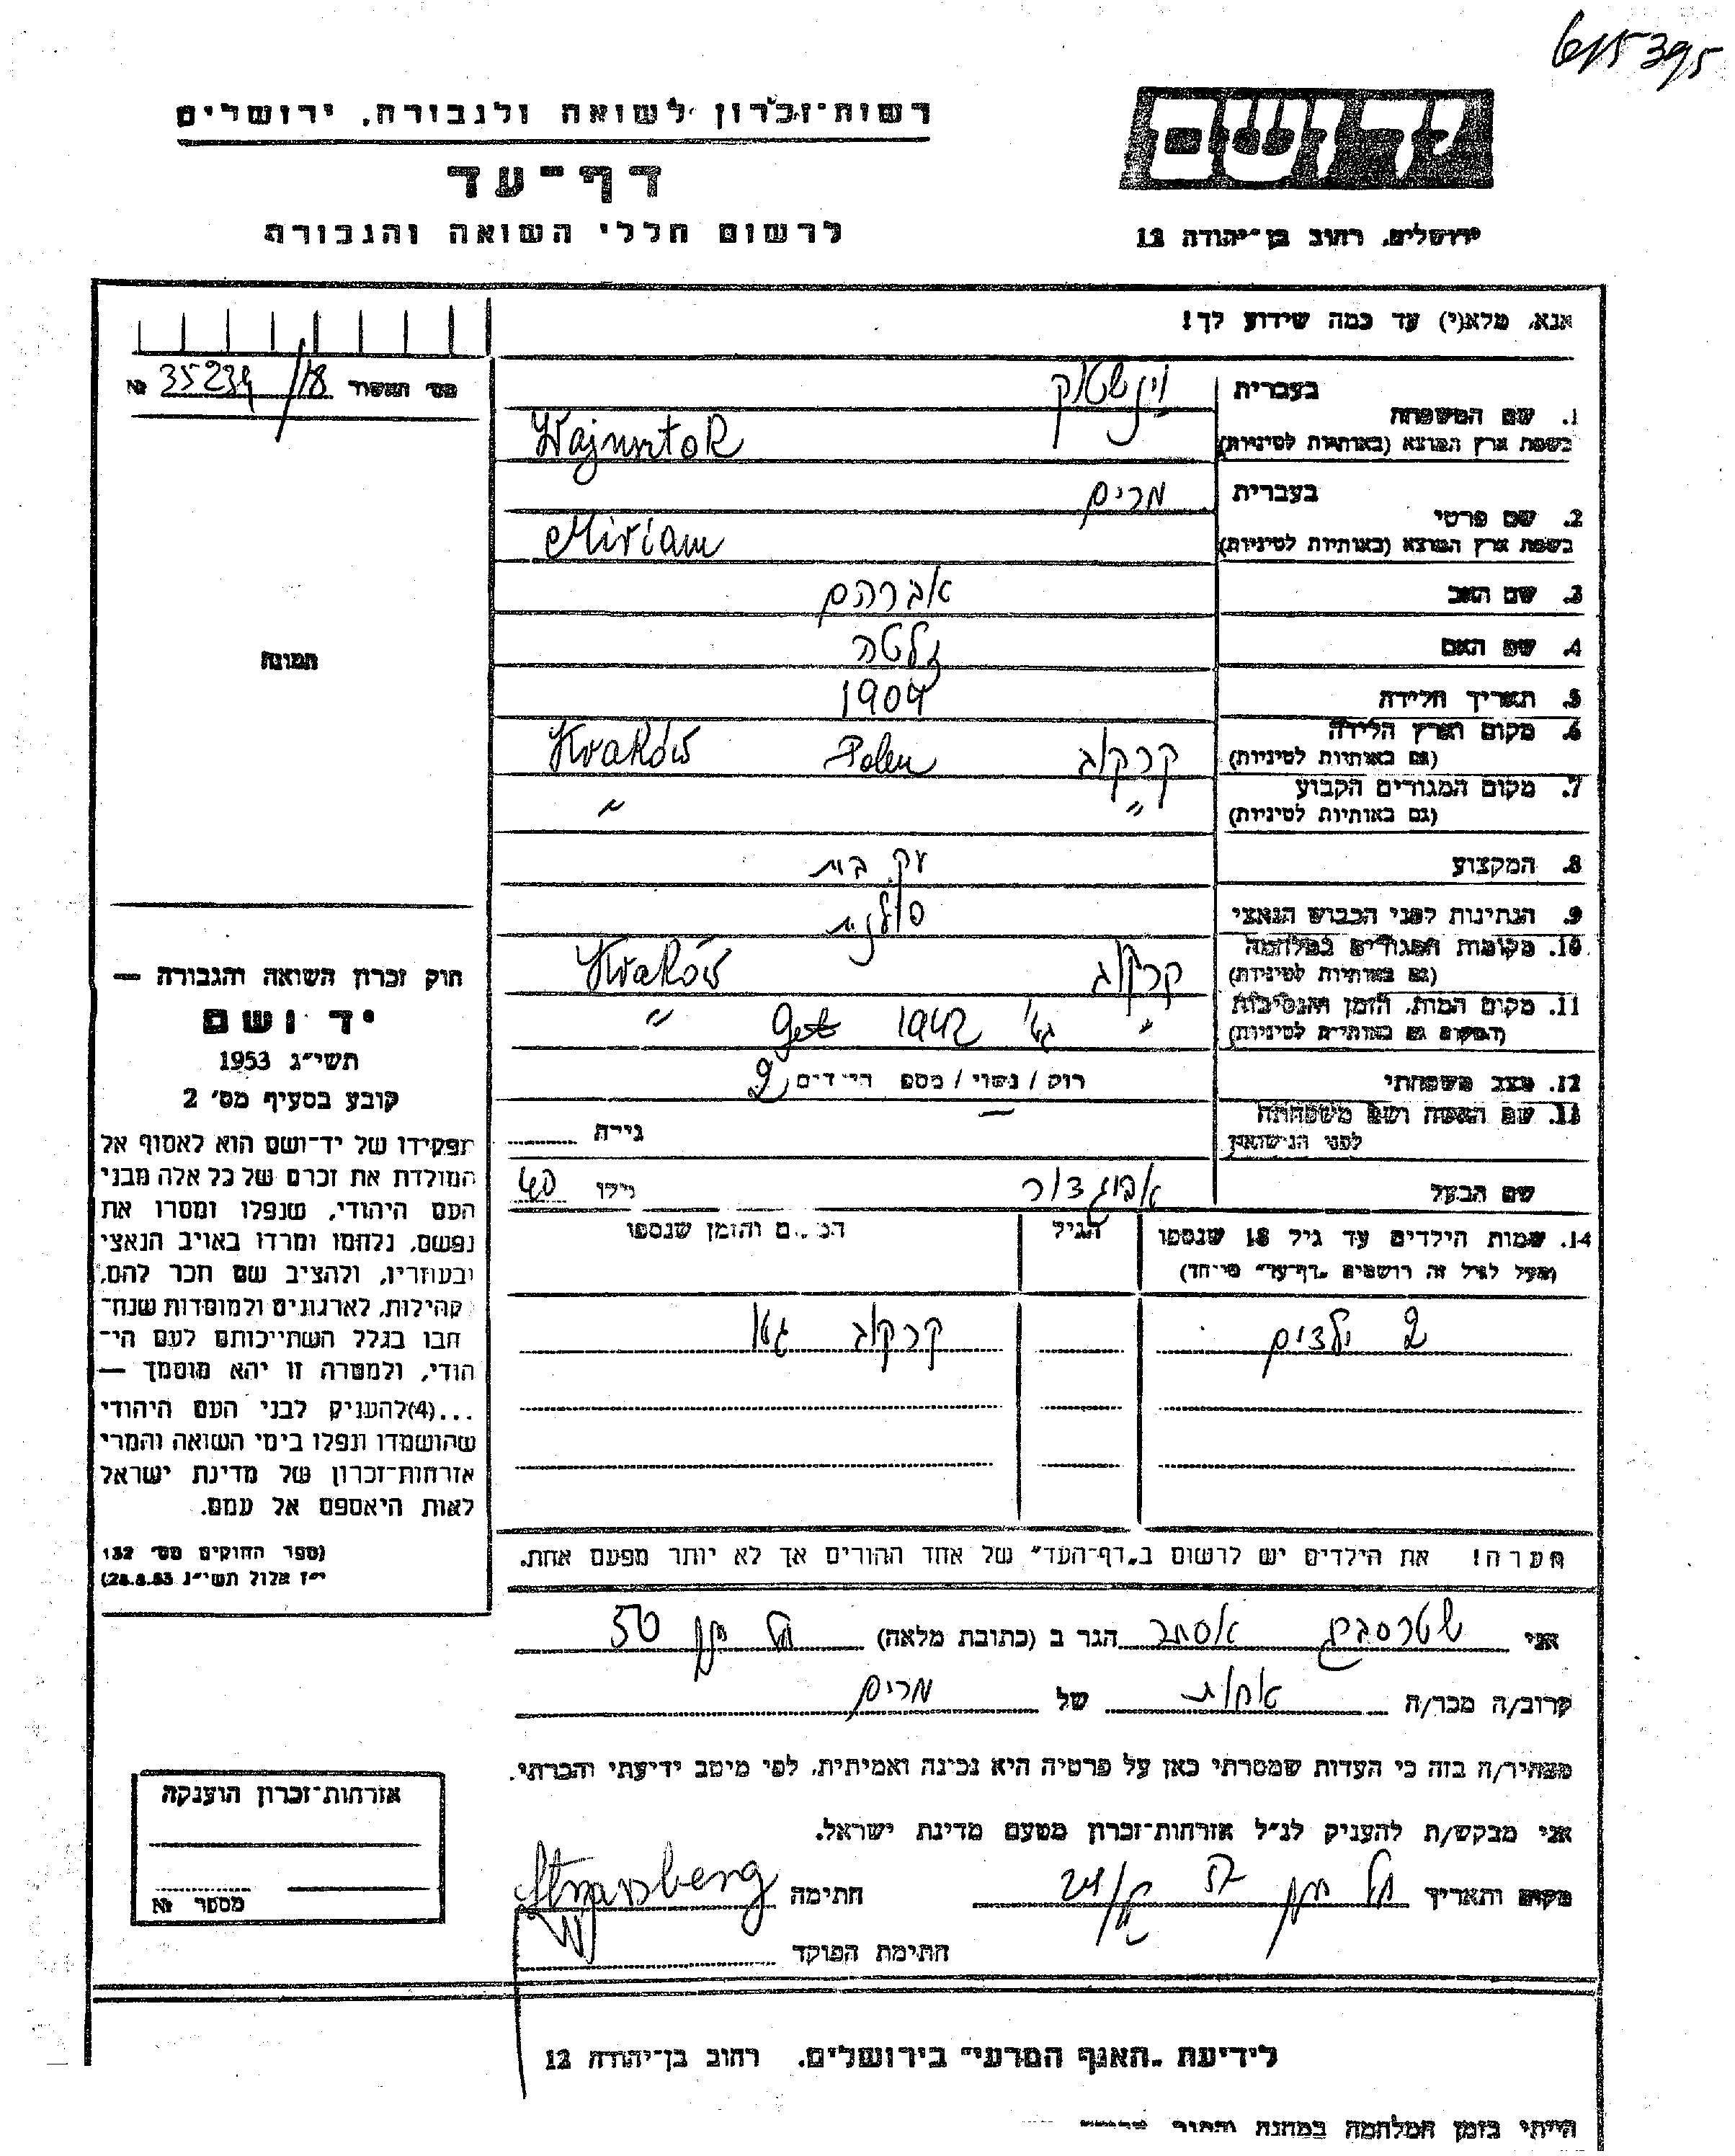 615395
רשות־זכרון לשואה ולגבורה, ירושלים
יד ושם
דף־עד
לרשום חללי השואה והגבורה
ירושלים, רחוב בן־יהודה 12
אנא, מלא(י) עד כמה שידוע לך!
מס׳ המשרד 35239/18 №
בעברית
1. שם המשפחה
וינשטוק
בשפת ארץ המוצא (באותיות לטיניות)
Wajnsztok
בעברית
2. שם פרטי
מרים
בשפת ארץ המוצא (באותיות לטיניות)
Miriam
3. שם האב אברהם
4. שם האם זלטה
תמונה
5. תאריך הלידה 1904
6. מקום וארץ הלידה
(גם באותיות לטיניות) קרקוב Polen Kraków
7. מקום המגורים הקבוע
(גם באותיות לטיניות) " "
8. המקצוע עק. בית
9. הנתינות לפני הכבוש הנאצי פולנית
10. מקומות המגורים במלחמה
(גם באותיות לטיניות) קרקוב Kraków
11. מקום המות, הזמן והנסיבות
(המקום גם באותיות לטיניות) " גטו 1942 "
12. מצב משפחתי רוק / נשוי / מספ הי־דים 2
13. שם האשה ושם משפחתה
לפני הנישואין
גילה
שם הבעל אביגדור גילו 40
14. שמות הילדים עד גיל 18 שנספו הגיל המקום והזמן שנספו
(מעל לגיל זה רושמים „דף־עד" מיוחד)
2 ילדים קרקוב גטו
הערה! את הילדים יש לרשום ב„דף־העד" של אחד ההורים אך לא יותר מפעם אחת.
חוק זכרון השואה והגבורה —
יד ושם
תשי״ג 1953
קובע בסעיף מס׳ 2
תפקידו של יד־ושם הוא לאסוף אל
המולדת את זכרם של כל אלה מבני
העם היהודי, שנפלו ומסרו את
נפשם, נלחמו ומרדו באויב הנאצי
ובעוזריו, ולהציב שם וזכר להם,
קהילות, לארגונים ולמוסדות שנח־
רבו בגלל השתייכותם לעם הי־
הודי, ולמטרה זו יהא מוסמך —
...(4)להעניק לבני העם היהודי
שהושמדו ונפלו בימי השואה והמרי
אזרחות־זכרון של מדינת ישראל
לאות היאספם אל עמם.
(ספר החוקים מס׳ 132
י״ז אלול תשי״ג 28.8.53)
אני שטרסברג אסתר הגר ב (כתובת מלאה) 50
קרוב/ה מכר/ה אחות של מרים
מצהיר/ה בזה כי העדות שמסרתי כאן על פרטיה היא נכונה ואמיתית, לפי מיטב ידיעתי והכרתי.
אני מבקש/ת להעניק לנ״ל אזרחות־זכרון מטעם מדינת ישראל.
מקום ותאריך חתימה Strasberg
חתימת הפוקד
אזרחות־זכרון הוענקה
מספר №
לידיעת „האגף המרעי" בירושלים, רחוב בן־יהודה 12
הייתי בזמן המלחמה במחנה